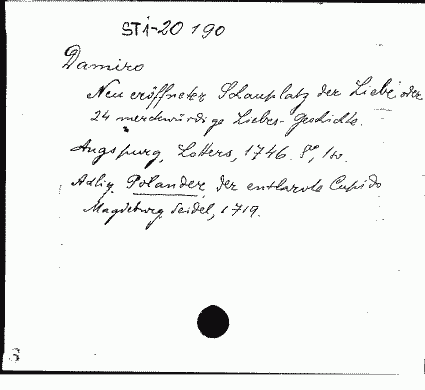 ST 1-20 190
Damiro
Neu eröffneter Schauplatz der Liebe, oder
24 merckwürdige Liebes-Geschichte.
Augspurg, Lotters, 1746. 8°,
Adlig. Polander, der entlarvte Cupido
Magdeburg, Seidel, 1719.